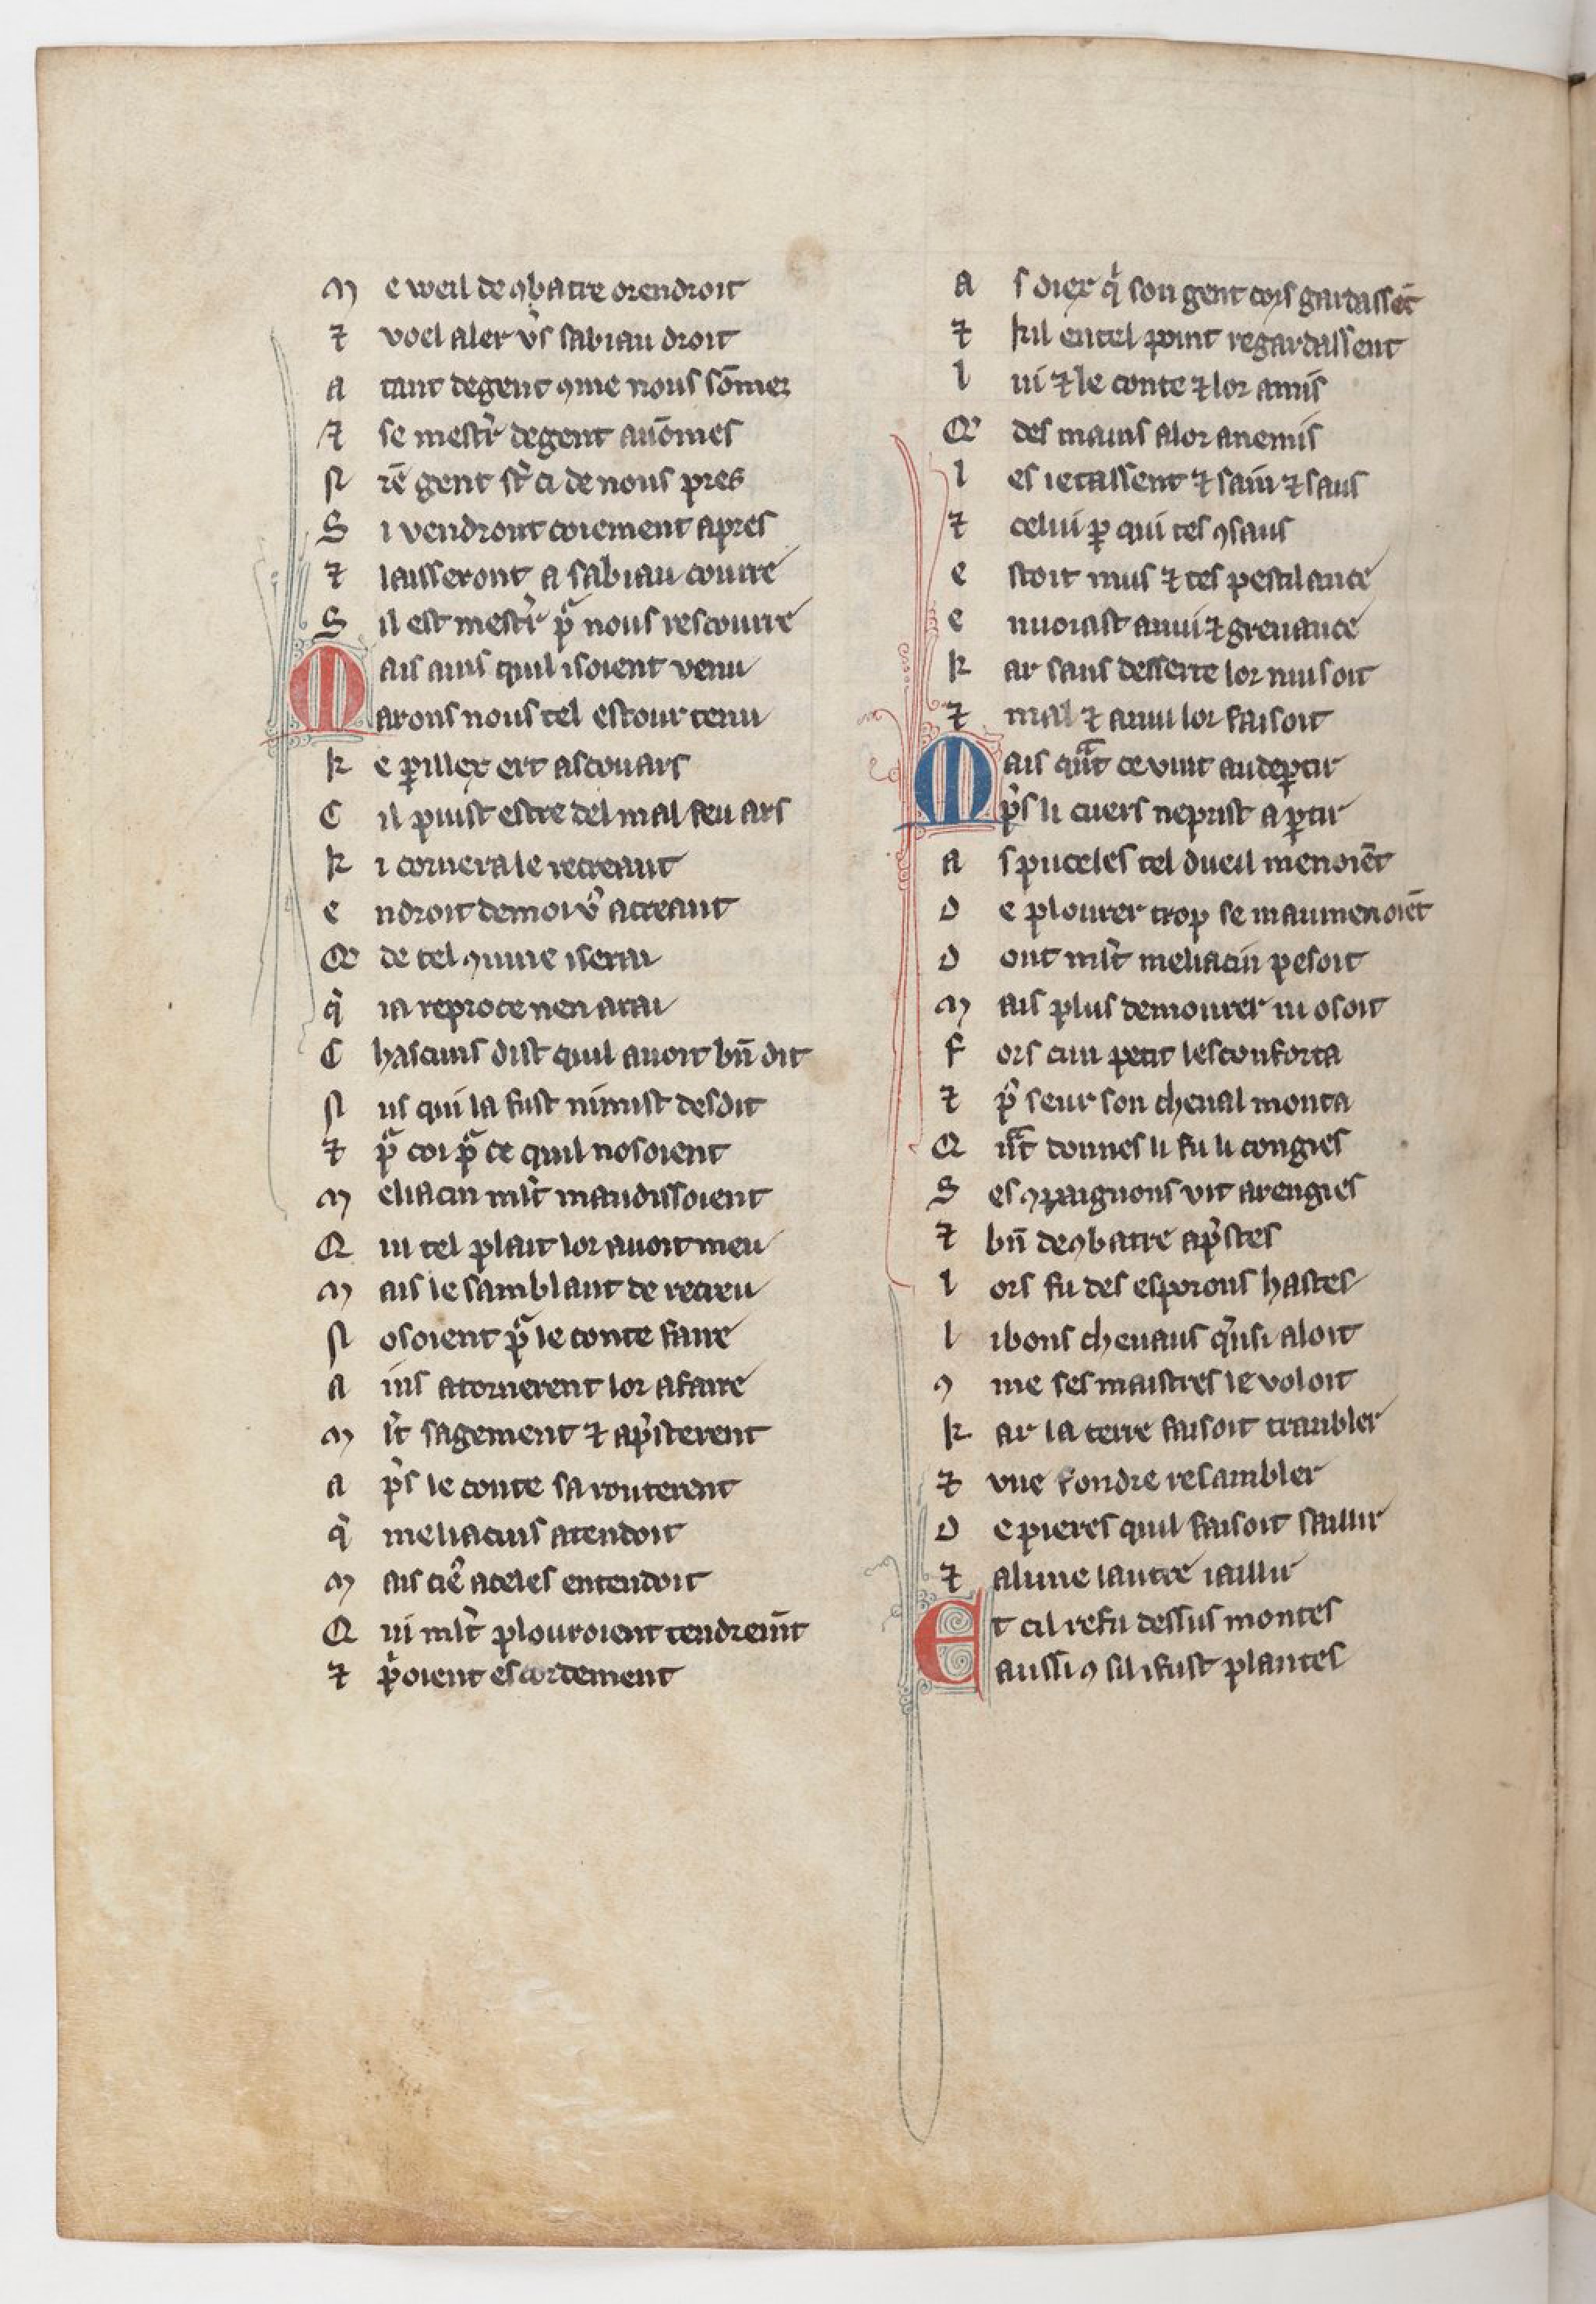 M e weil de ꝯbatre orendroit
⁊ voel aler v̾s sabiau droit
A tant de gent ꝯme nous sōmez
⁊ se mestr̾ de gent auōmes
N rē gent sr̾t ci de nous pres
S i vendront coiement apres
⁊ laisseront a sabiau courre
S il est mestr̾ pͣ nous rescourre
M ais ains quil i soient venu
arons nous tel estour tenu
K e ꝑillex ert as couars
C il puist estre del mal feu ars
K i cornera le recreant
E ndroit de moi v̾ acreant
Q̃ de tel ꝯuine i serai
q̾ ia reproce nen arai
C hascuns dist quil auoit bn̄ dit
N us qui la fust ni mist desdit
⁊ pͣ coi pͣ ce quil nosoient
M eliacin ml̾t maudissoient
Q ui tel plait lor auoit meu
M ais le samblant de recreu
N osoient pͣ le conte faire
A ins atornerent lor afaire
M l̾t sagement ⁊ ap̾sterent
A p̾s le conte sa routerent
q̾ meliacins atendoit
M ais ciē a celes entendoit
Q ui ml̾t plouroient tendremn̄t
⁊ p̾oient escordement
A s diex q̾ son gent cors gardassēt
⁊ kil en tel point regardassent
L ui ⁊ le conte ⁊ lor amis
Q̃ des mains a lor anemis
L es ietassent ⁊ sain ⁊ saus
⁊ celui ꝑ qui tes ꝯsaus
E stoit mus ⁊ tes pestilance
E nuoiast anui ⁊ greuance
K ar sans desserte lor nuisoit
⁊ mal ⁊ anui lor faisoit
M ais qͣnt ce vint au deꝑtir
p̾s li cuers ne prist a ꝑtir
A s puceles tel dueil menoiēt
D e plourer trop se maumenoiēt
D ont ml̾t meliacin pesoit
M ais plus demourer ni osoit
F ors cun petit les conforta
⁊ p̾ seur son cheual monta
Q nͣt donnes li fu li congies
S es ꝯpaignons vit arengies
⁊ bn̄ de ꝯbatre ap̾stes
L ors fu des esporons hastes
L i bons cheuaus q̾nsi aloit
ꝯ me ses maistres le voloit
K ar la terre faisoit trambler
⁊ vne fondre resambler
D e pieres quil faisoit saillir
⁊ a lune lautre iaillir
E t cil refu dessus montes
aussi ꝯ sil i fust plantes